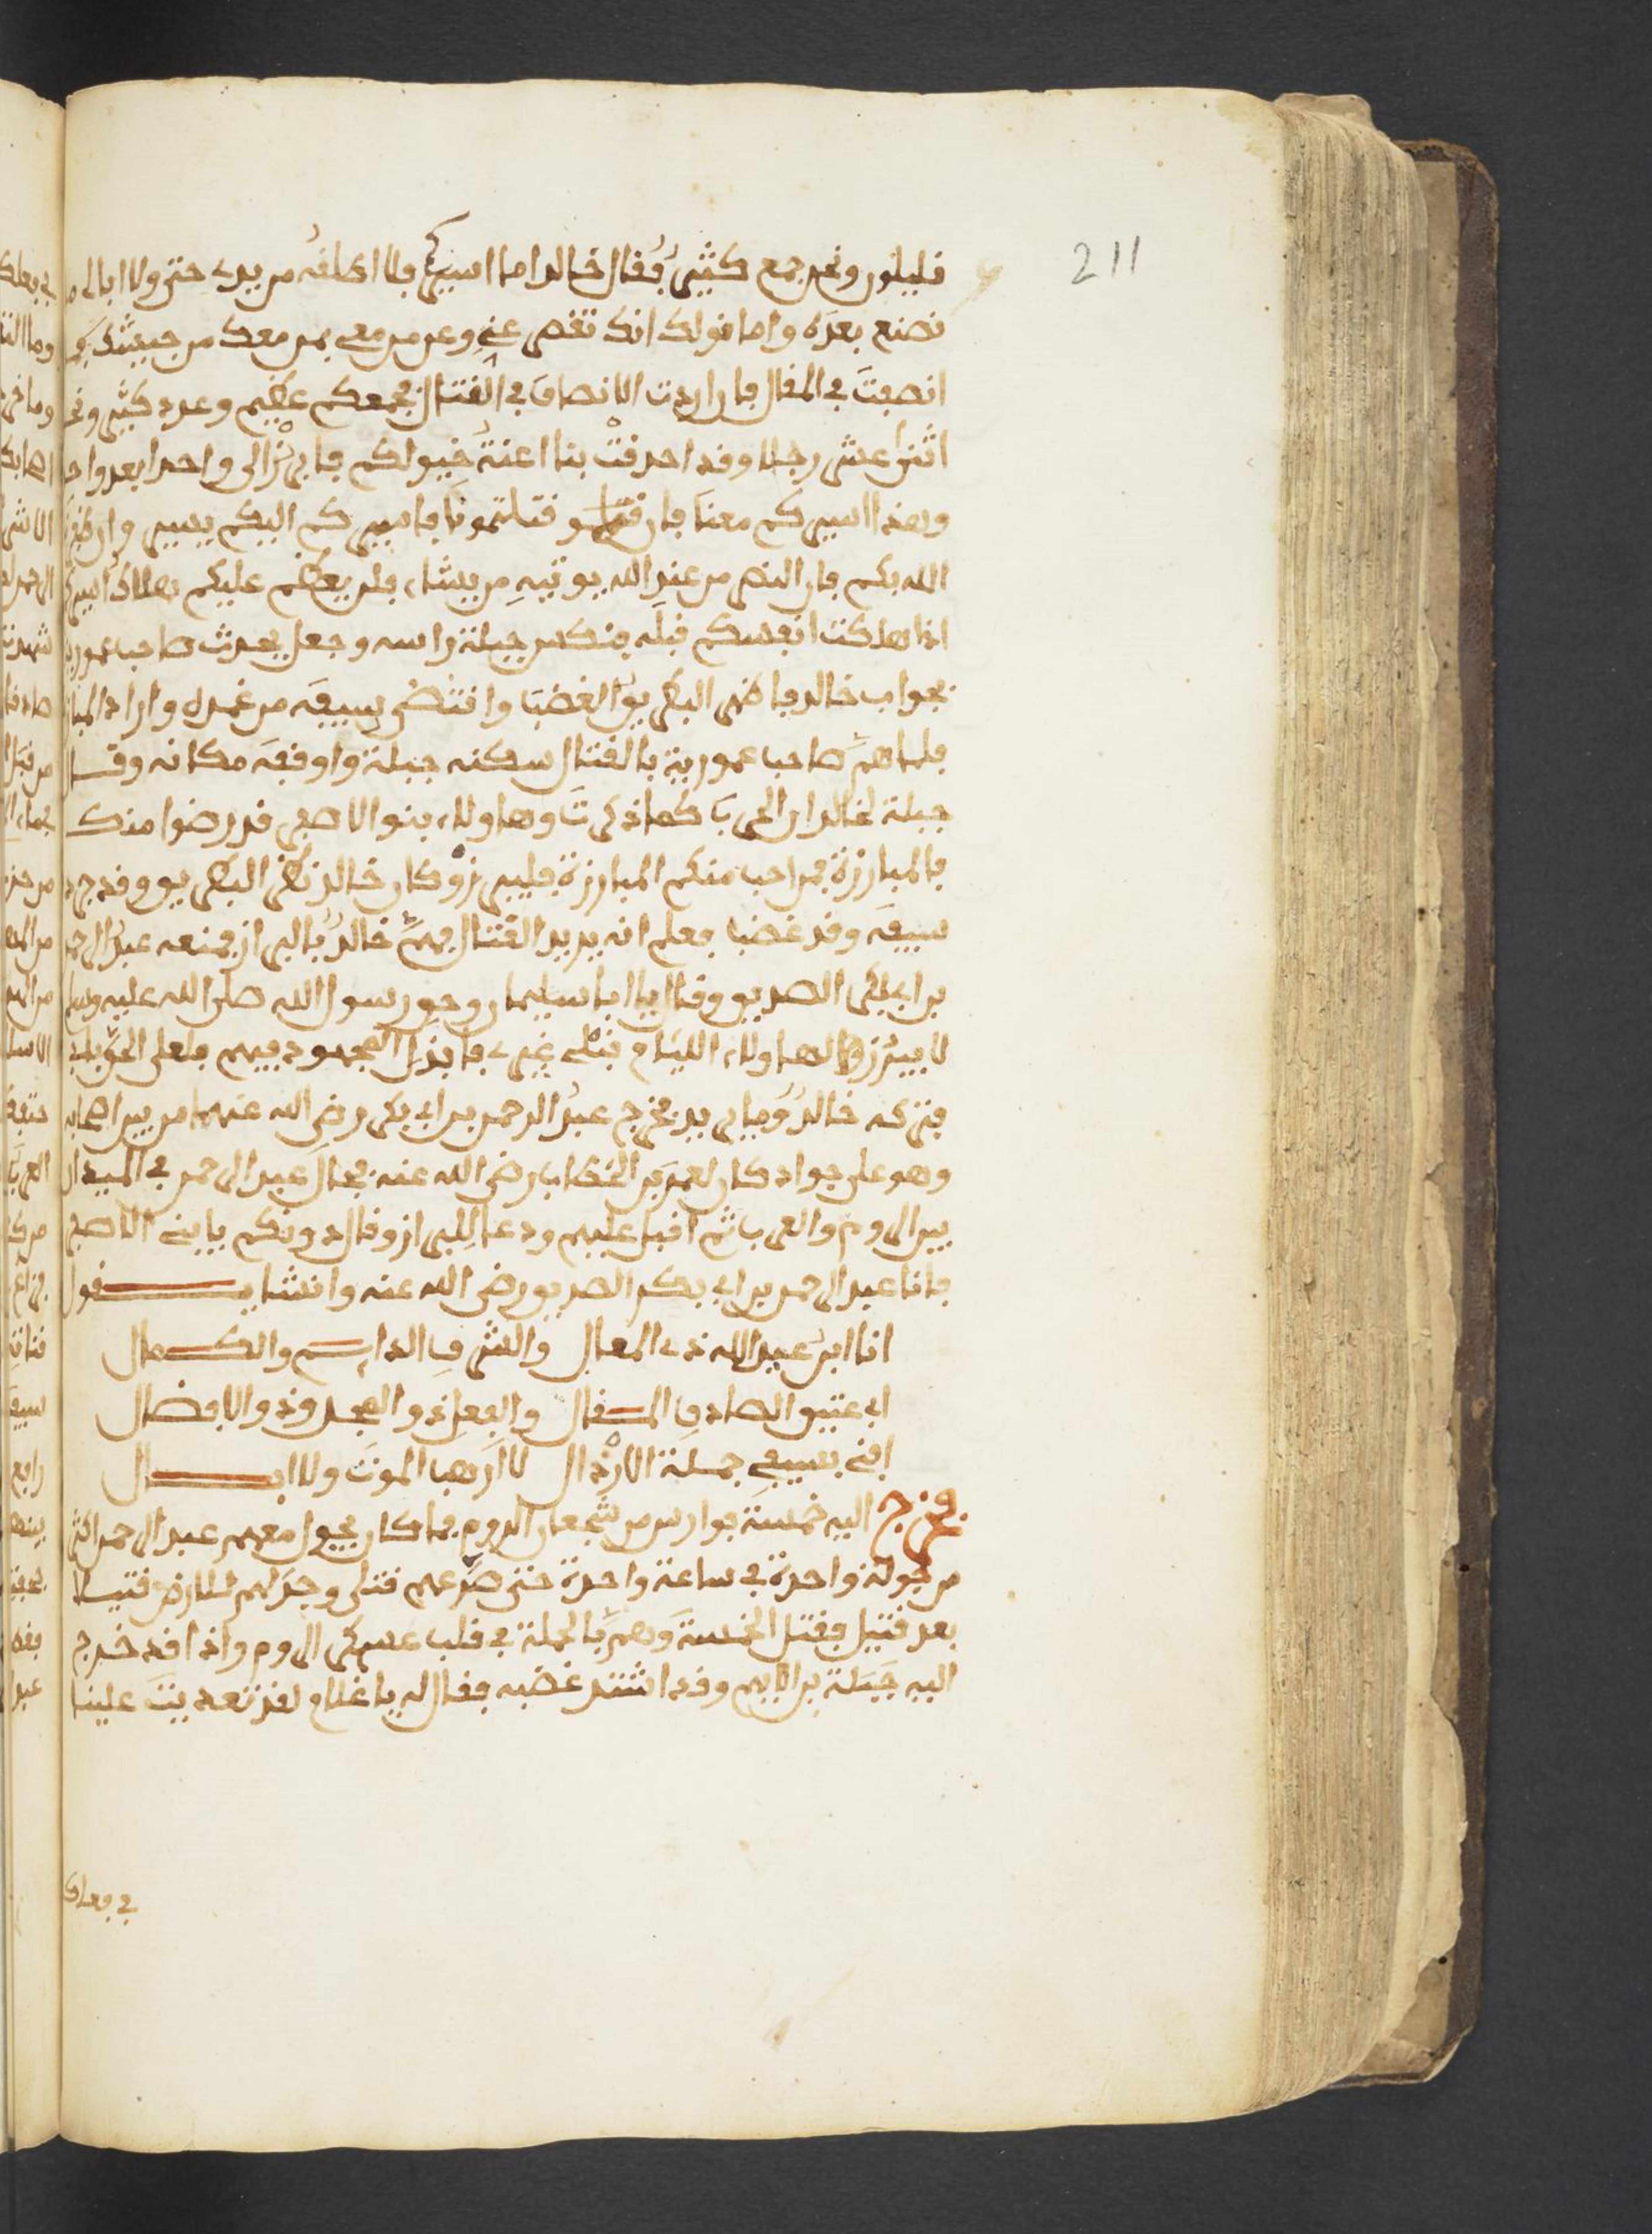 211
قليلون ونحن جمع كثير فقال خالد اما اسيركم فلا اطلقه من يدي حتى ولا ابالي
نصنع بعده واما قولك انك تقصر عني وعن من معي بمن معك من جيشك
انصفت في المقال فان اردت الانصاف في القتال فجمعكم عظيم وعدد كثير ونحن
اثنا عشر رجلا وقد احدقت بنا اعنة خيولكم فابرزوا الي واحدا بعد واحد
وهذا اسيركم معنا فان قتلتمونا فاسيركم اليكم يسير وان ظفرنا
الله بكم فان النصر من عند الله يوتيه من يشاء فلم يعظم عليكم هلاك اسيركم
اذا هلكت انفسكم قبله فنكس جبلة راسه وجعل يحدث صاحب عمورية
بجواب خالد فاظهر البطريق الغضب وانتضى سيفه من غمده واراد المبارزة
فلما هم صاحب عمورية بالقتال سكنه جبلة واوقفه مكانه وقال
جبلة لخالد ان الحرب كما ذكرت وهاولاء بنو الاصفر قد رضوا منك
بالمبارزة فمن احب منكم المبارزة فليبرز وكان خالد نظر البطريق وقد جرد
سيفه وقد غضب فعلم انه يريد القتال فهم خالد بالبراز فمنعه عبد الرحمن
بن ابي بكر الصديق وقال يا ابا سليمان وحق رسول الله صلى الله عليه وسلم
لا يبرز لهاولاء الليام قبلك غيري فابذل المجهود فيهم فلعلي الحق بابي
فتركه خالد وما يريد فخرج عبد الرحمن بن ابي بكر رضي الله عنهما من بين اصحابه
وهو على جواد كان لعمر بن الخطاب رضي الله عنه فجال عبد الرحمن في الميدان
بين الروم والعرب ثم اقبل عليهم ودعا للبراز وقال دونكم يا بني الاصفر
فانا عبد الرحمن بن ابي بكر الصديق رضي الله عنه وانشا يقول
انا ابن عبد الله ذي المعال والشرف الداسم والكمال
ابي عتيق الصادق المقال والفعل ذو المجد وذو الافضال
افني بسيفي جملة الارذال لا ارهب الموت ولا ابال
فخرج اليه خمسة فوارس من شجعان الروم فما كان يجول معهم عبد الرحمن اكثر
من جولة واحدة في ساعة واحدة حتى صرعهم قتلى وجدلهم للارض قتيلا
بعد قتيل فقتل الخمسة وهم بالحملة في قلب عسكر الروم واذا قد خرج
اليه جبلة بن الايهم وقد اشتد غضبه فقال له يا غلام لقد تعديت علينا
في فعلك